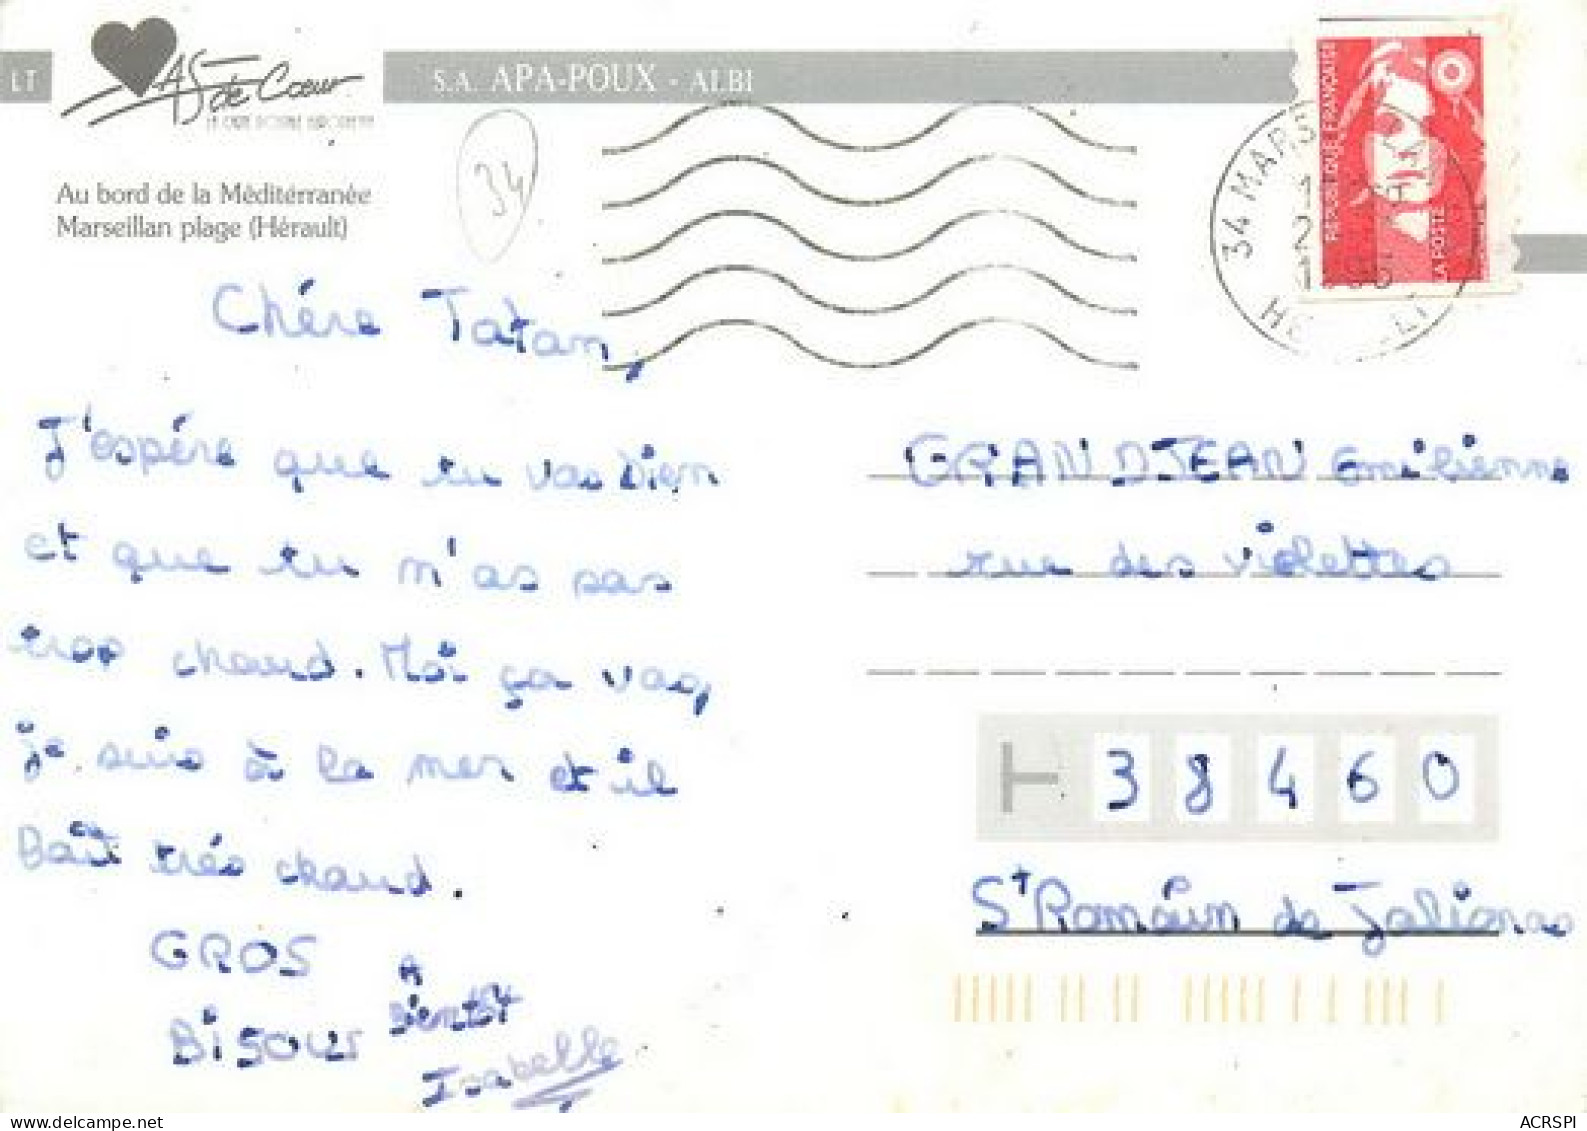 LT
AS de Cœur
S.A. APA-POUX - ALBI
34
Au bord de la Méditerranée
Marseillan plage (Hérault)
34 MARS
HE LT
REPUBLIQUE FRANÇAISE
LA POSTE
Chére Tatan,
J'espére que tu vas bien
et que tu m'as pas
trop chaud. Moi ça va,
je suis à la mer et il
Bait trés chaud.
GROS
BISOUS
A
Bientôt
Isabelle
GRANDJEAN Emilienne
rue des violettes
38460
St Romain de Jalionas
delcampe.net
ACRSPI